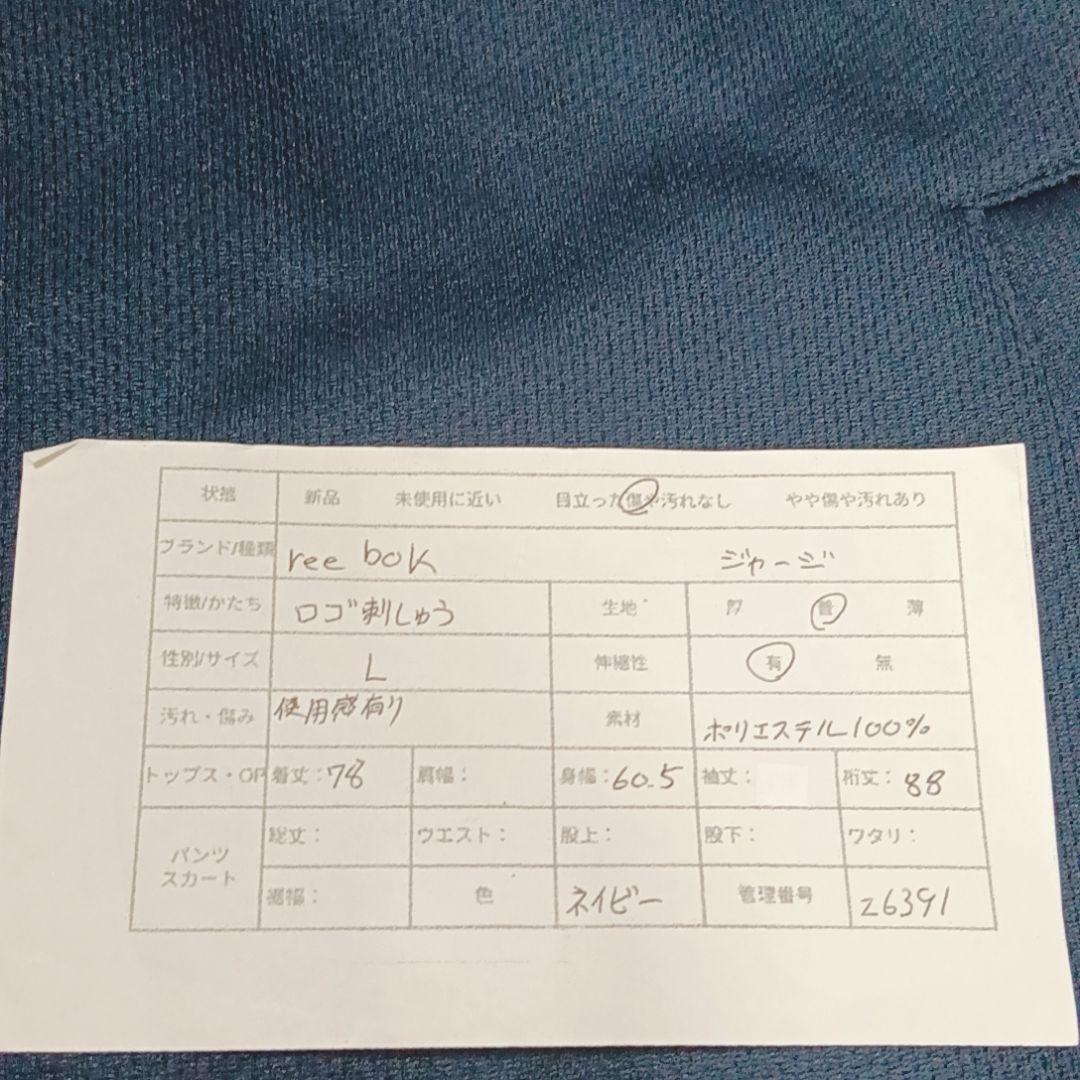 状態 新品 未使用に近い 目立った傷や汚れなし やや傷や汚れあり
ブランド/種類 ree bok ジャージ
特徴/かたち ロゴ刺しゅう 生地 厚 普 薄
性別/サイズ L 伸縮性 有 無
汚れ・傷み 使用感有り 素材 ポリエステル100%
トップス・OP 着丈:78 肩幅: 身幅:60.5 袖丈: 裄丈:88
パンツ スカート 総丈: ウエスト: 股上: 股下: ワタリ:
裾幅: 色 ネイビー 管理番号 26391